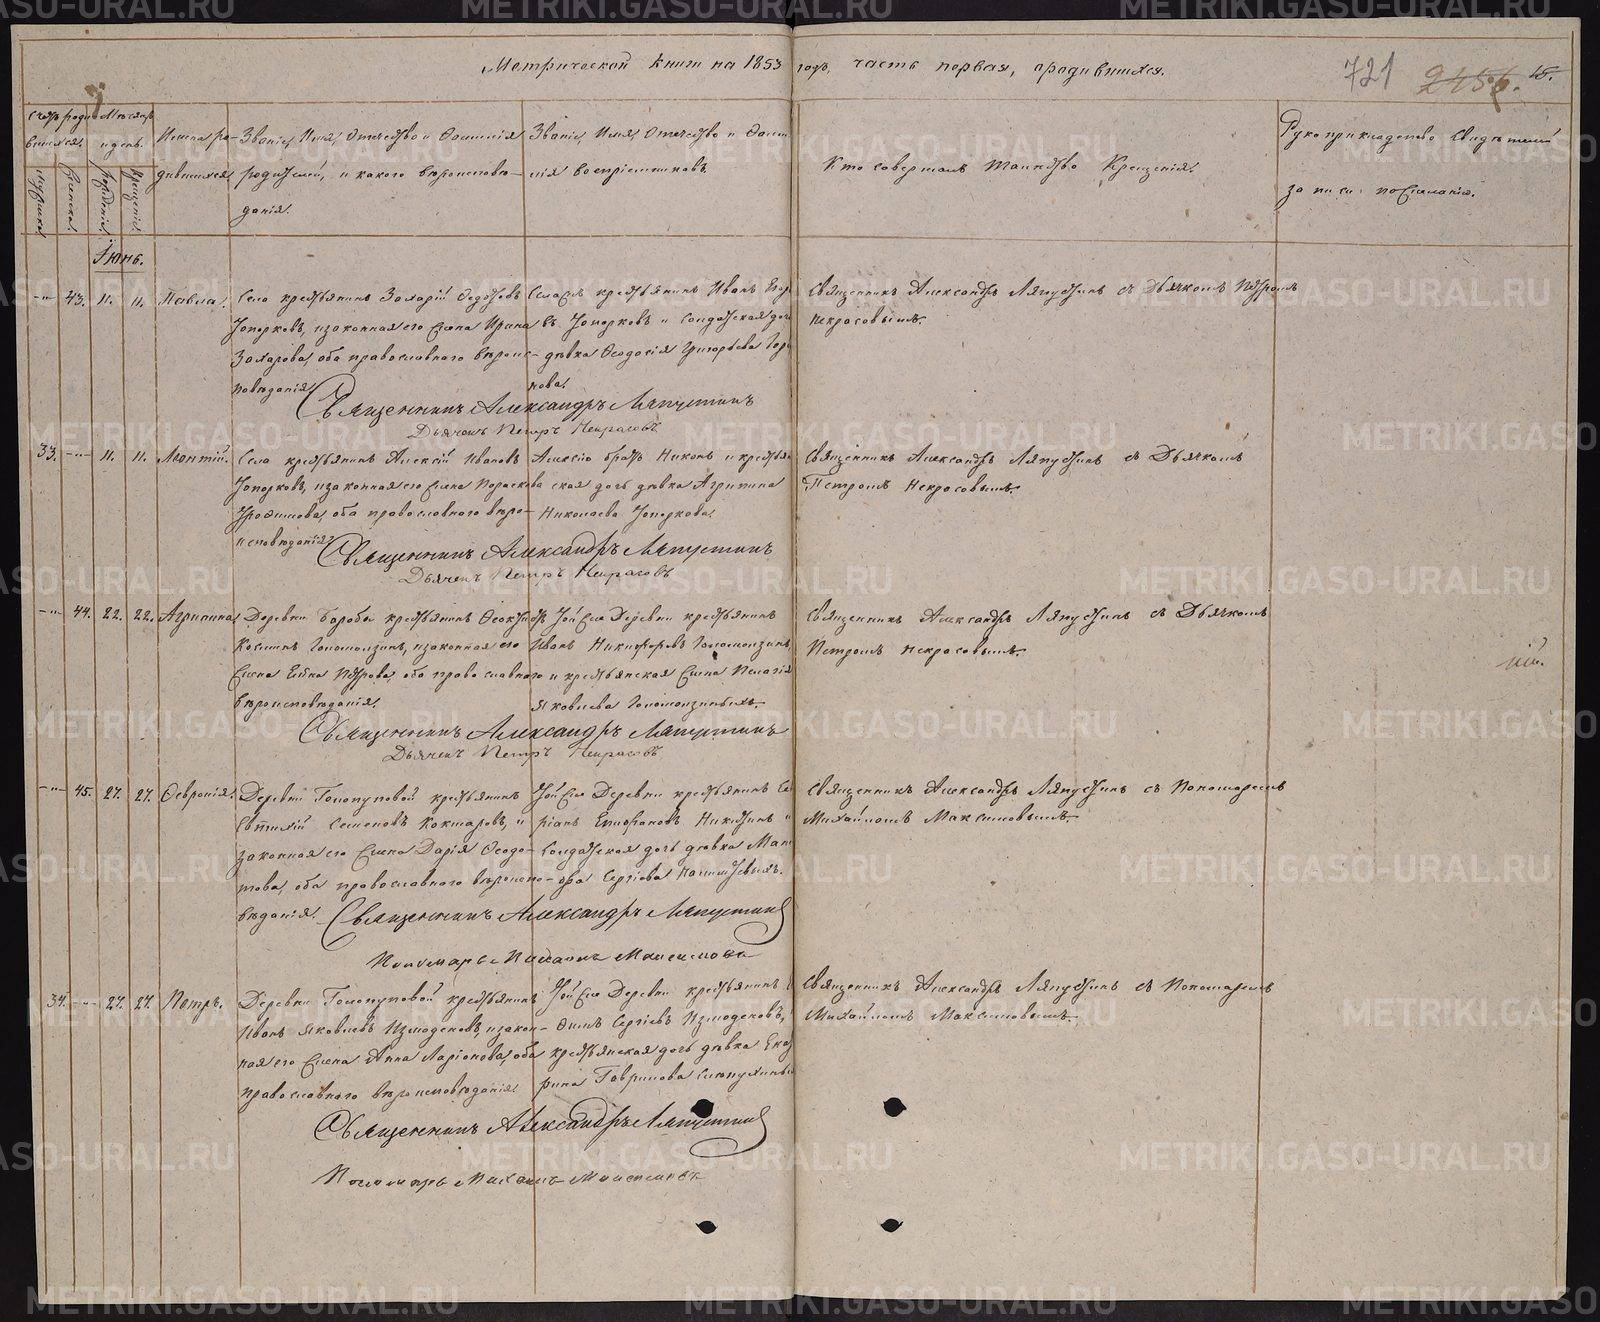 Метрической книги на 1853 годъ, часть первая, о родившихся.
721
15.
Счетъ родившихся.
Мѣсяцъ и день.
Имена родившихся
Званіе, Имя, Отчество и Фамилія родителей, и какого вѣроисповѣданія.
Званіе, Имя, Отчество и Фамилія воспріемниковъ.
Кто совершалъ Таинство Крещенія.
Рукоприкладство свидѣтелей записи по желанію.
мужеска.
женска.
рожденія.
крещенія.
Іюнь.
43. 11. 11. Павла.
Села крестьянинъ Захарій Федотовъ
Топорковъ, и законная его жена Ирина
Захарова, оба православного вѣроис-
повѣданія.
Села крестьянинъ Иванъ
въ Топорковъ и солдатская
дѣвка Ѳеодосія Григорьева
нова.
Священникъ Александръ Ляпустинъ съ Дьячкомъ Петромъ
Некрасовымъ.
Священникъ Александръ Ляпустинъ
Дьячекъ Петръ Некрасовъ
33. 11. 11. Леонтій.
Села крестьянинъ Алексій Ивановъ
Топорковъ, и законная его жена Параскева
Трофимова, оба православного вѣро-
исповѣданія.
Алексію братъ Никонъ и крестьян
ская дочь дѣвка Агрипина
Николаева Топоркова.
Священникъ Александръ Ляпустинъ съ Дьячкомъ
Петромъ Некрасовымъ.
Священникъ Александръ Ляпустинъ
Дьячекъ Петръ Некрасовъ
44. 22. 22. Агрипина
Деревни крестьянинъ
Косминъ Голомолзинъ, и законная его
жена Петрова, оба православного
вѣроисповѣданія.
Той же Деревни крестьянинъ
Иванъ Никифоровъ Голомолзинъ
и крестьянская жена Пелагія
Яковлева Голомолзиныхъ.
Священникъ Александръ Ляпустинъ съ Дьячкомъ
Петромъ Некрасовымъ.
Священникъ Александръ Ляпустинъ
Дьячекъ Петръ Некрасовъ
45. 27. 27. Февронія.
Деревни Голопуповой крестьянинъ
Евтихій Семеновъ Кокшаровъ, и
законная его жена Дарія Ѳеодо-
това, оба православного вѣроиспо-
вѣданія.
Той же Деревни крестьянинъ
ріанъ Епифановъ Никитинъ и
солдатская дочь дѣвка Мат
Сергіева
Священникъ Александръ Ляпустинъ съ Пономаремъ
Михайломъ Максимовымъ.
Священникъ Александръ Ляпустинъ
Пономарь Михаилъ Максимовъ
34. 27. 27. Петръ.
Деревни Голопуповой крестьянинъ
Иванъ Яковлевъ Измоденовъ, и закон-
ная его жена Анна Ларіонова, оба
православного вѣроисповѣданія.
Той же Деревни крестьянинъ
Сергіевъ Измоденовъ, и
крестьянская дочь дѣвка Екате
рина Гаврилова
Священникъ Александръ Ляпустинъ съ Пономаремъ
Михайломъ Максимовымъ.
Священникъ Александръ Ляпустинъ
Пономарь Михаилъ Максимовъ
METRIKI.GASO-URAL.RU